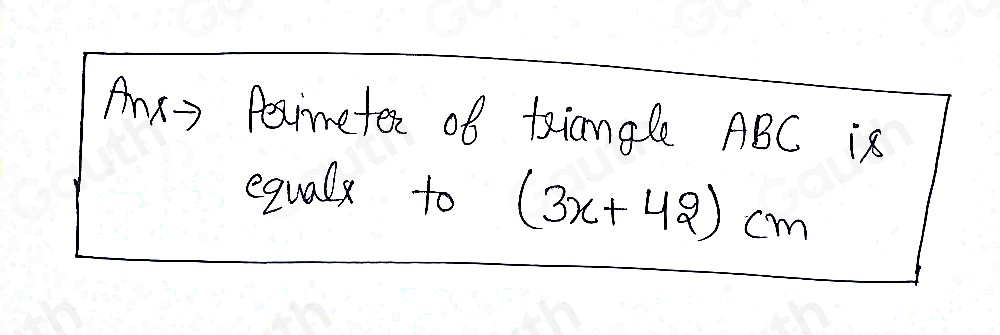 Ans→ Perimeter of triangle ABC is
equals to (3x+42) cm